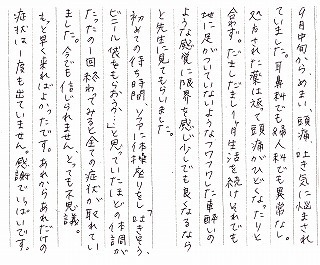 9月中旬から、めまい、頭痛、吐き気に悩まされ
ていました。耳鼻科でも婦人科でも異常なし。
処方された薬は返って頭痛がひどくなったりと
合わず。だましだまし1ヶ月生活を続けそれでも
地に足がついていないようなフワフワした車酔いの
ような感覚に限界を感じ少しでも良くなるなら
と先生に見てもらいました。
初めての待ち時間、ソファに体操座りをし「吐きそう、
ビニール袋をもらおうか…」と思っていたほどの体調が
たったの一回終わってみると全ての症状が取れてい
ました。今でも信じられません。とっても不思議。
もっと早く来ればよかったです。あれからあれだけの
症状は一度も出ていません。感謝でいっぱいです。